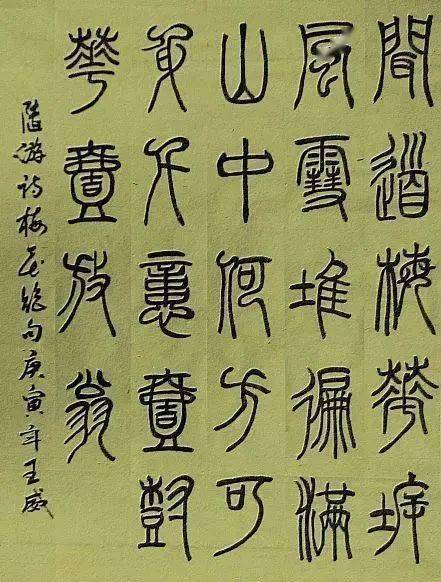 聞道梅華坼
風雪堆徧滿
山中何方可
身千億壹樹
華壹放翁
陸游詩梅花絕句庚寅年王威